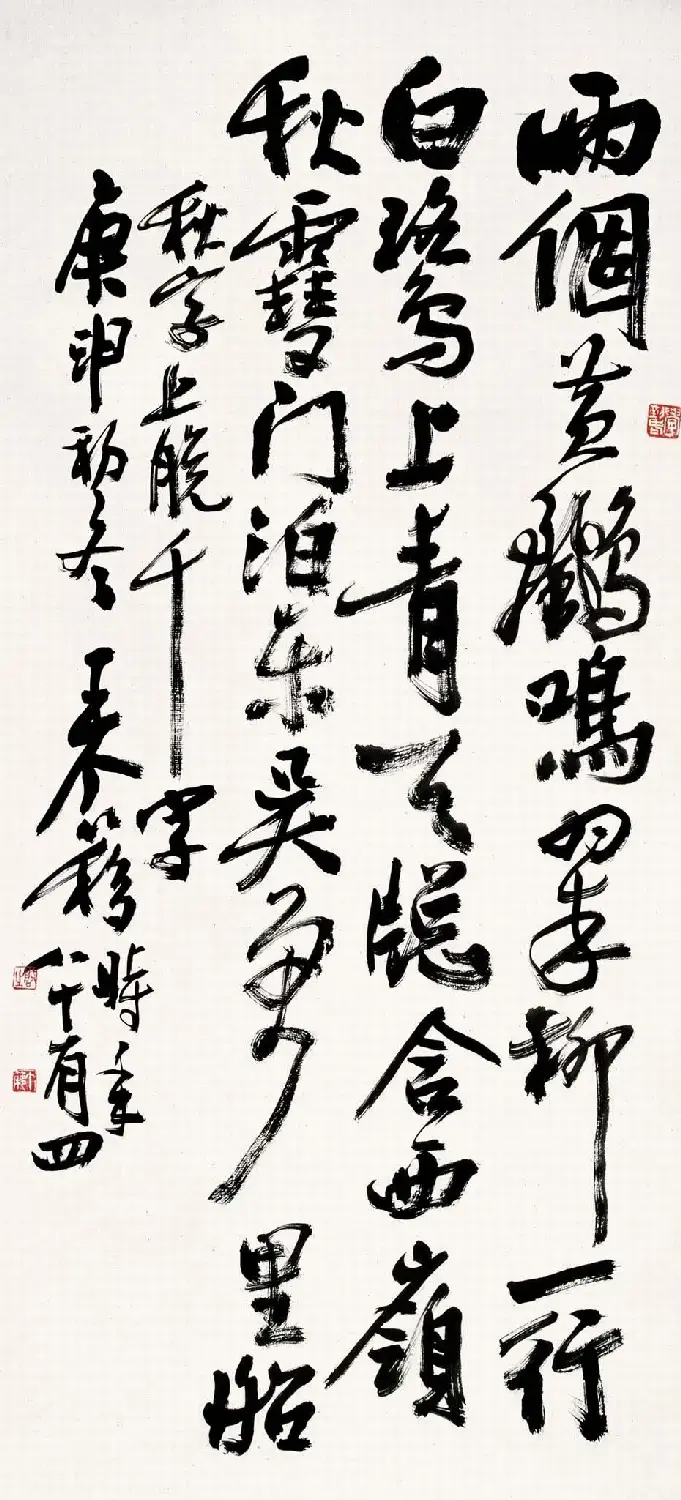 兩個黃鸝鳴翠柳一行
白鷺上青天牕含西嶺
秋䨮门泊東吳萬里船
秋字上脫千字
庚申初冬王个簃時年
八十有四